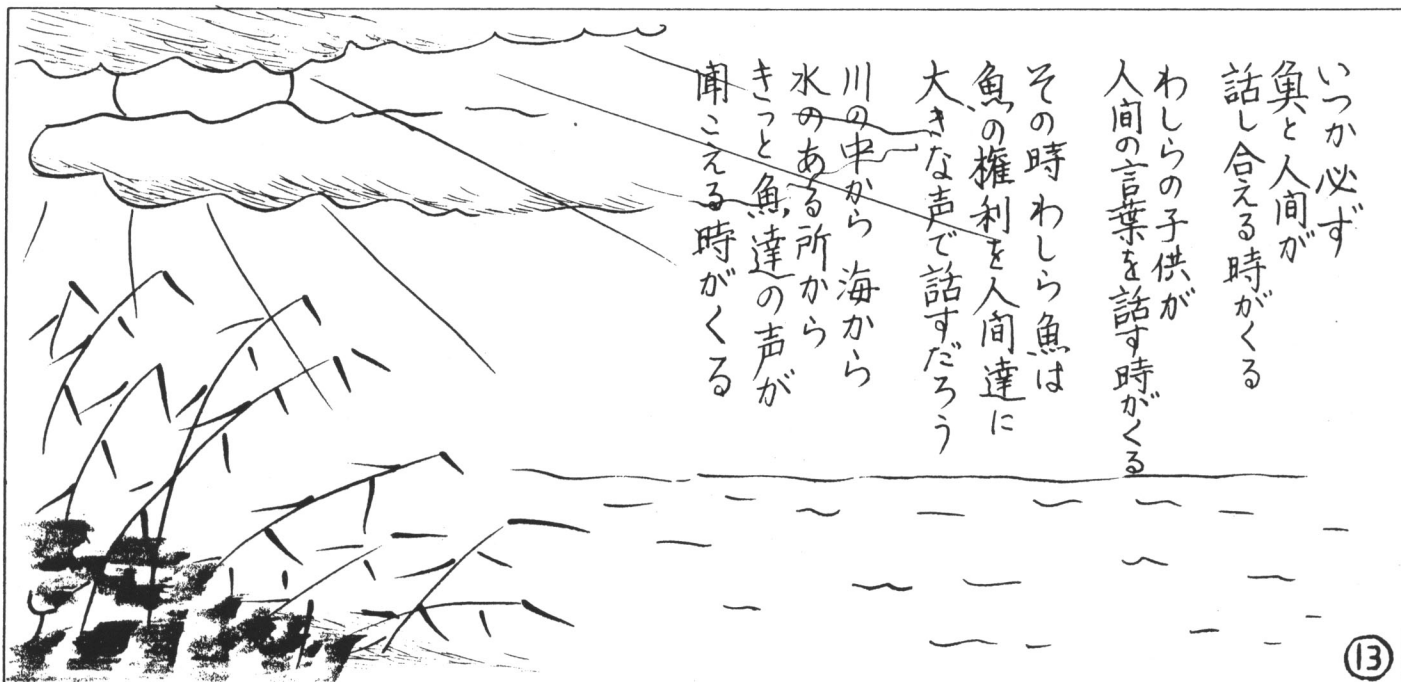 いつか必ず
魚と人間が
話し合える時がくる
わしらの子供が
人間の言葉を話す時がくる
その時 わしら魚は
魚の権利を人間達に
大きな声で話すだろう
川の中から 海から
水のある所から
きっと魚達の声が
聞こえる時がくる
⑬